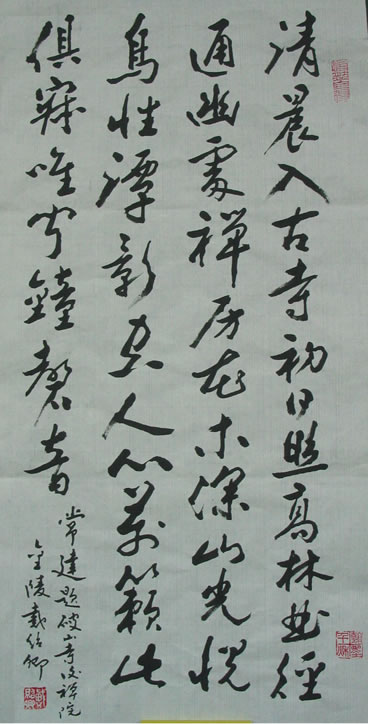 清晨入古寺初日照高林曲徑
通幽處禪房花木深山光悅
鳥性潭影空人心萬籟此
俱寂唯聞鐘磬音
常建題破山寺後禪院
金陵戴